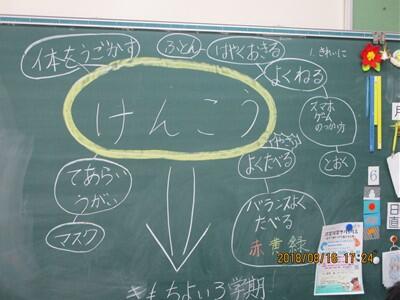 体をうごかす
ふとん
はやくおきる
1. きれいに
よくねる
けんこう
スマホ
ゲーム
のつかい方
とおく
てあらい
うがい
よくたべる
マスク
バランスよく
たべる
赤 黄 緑
きもちよい3学期
月
6
日直
2018/08/18 17:24